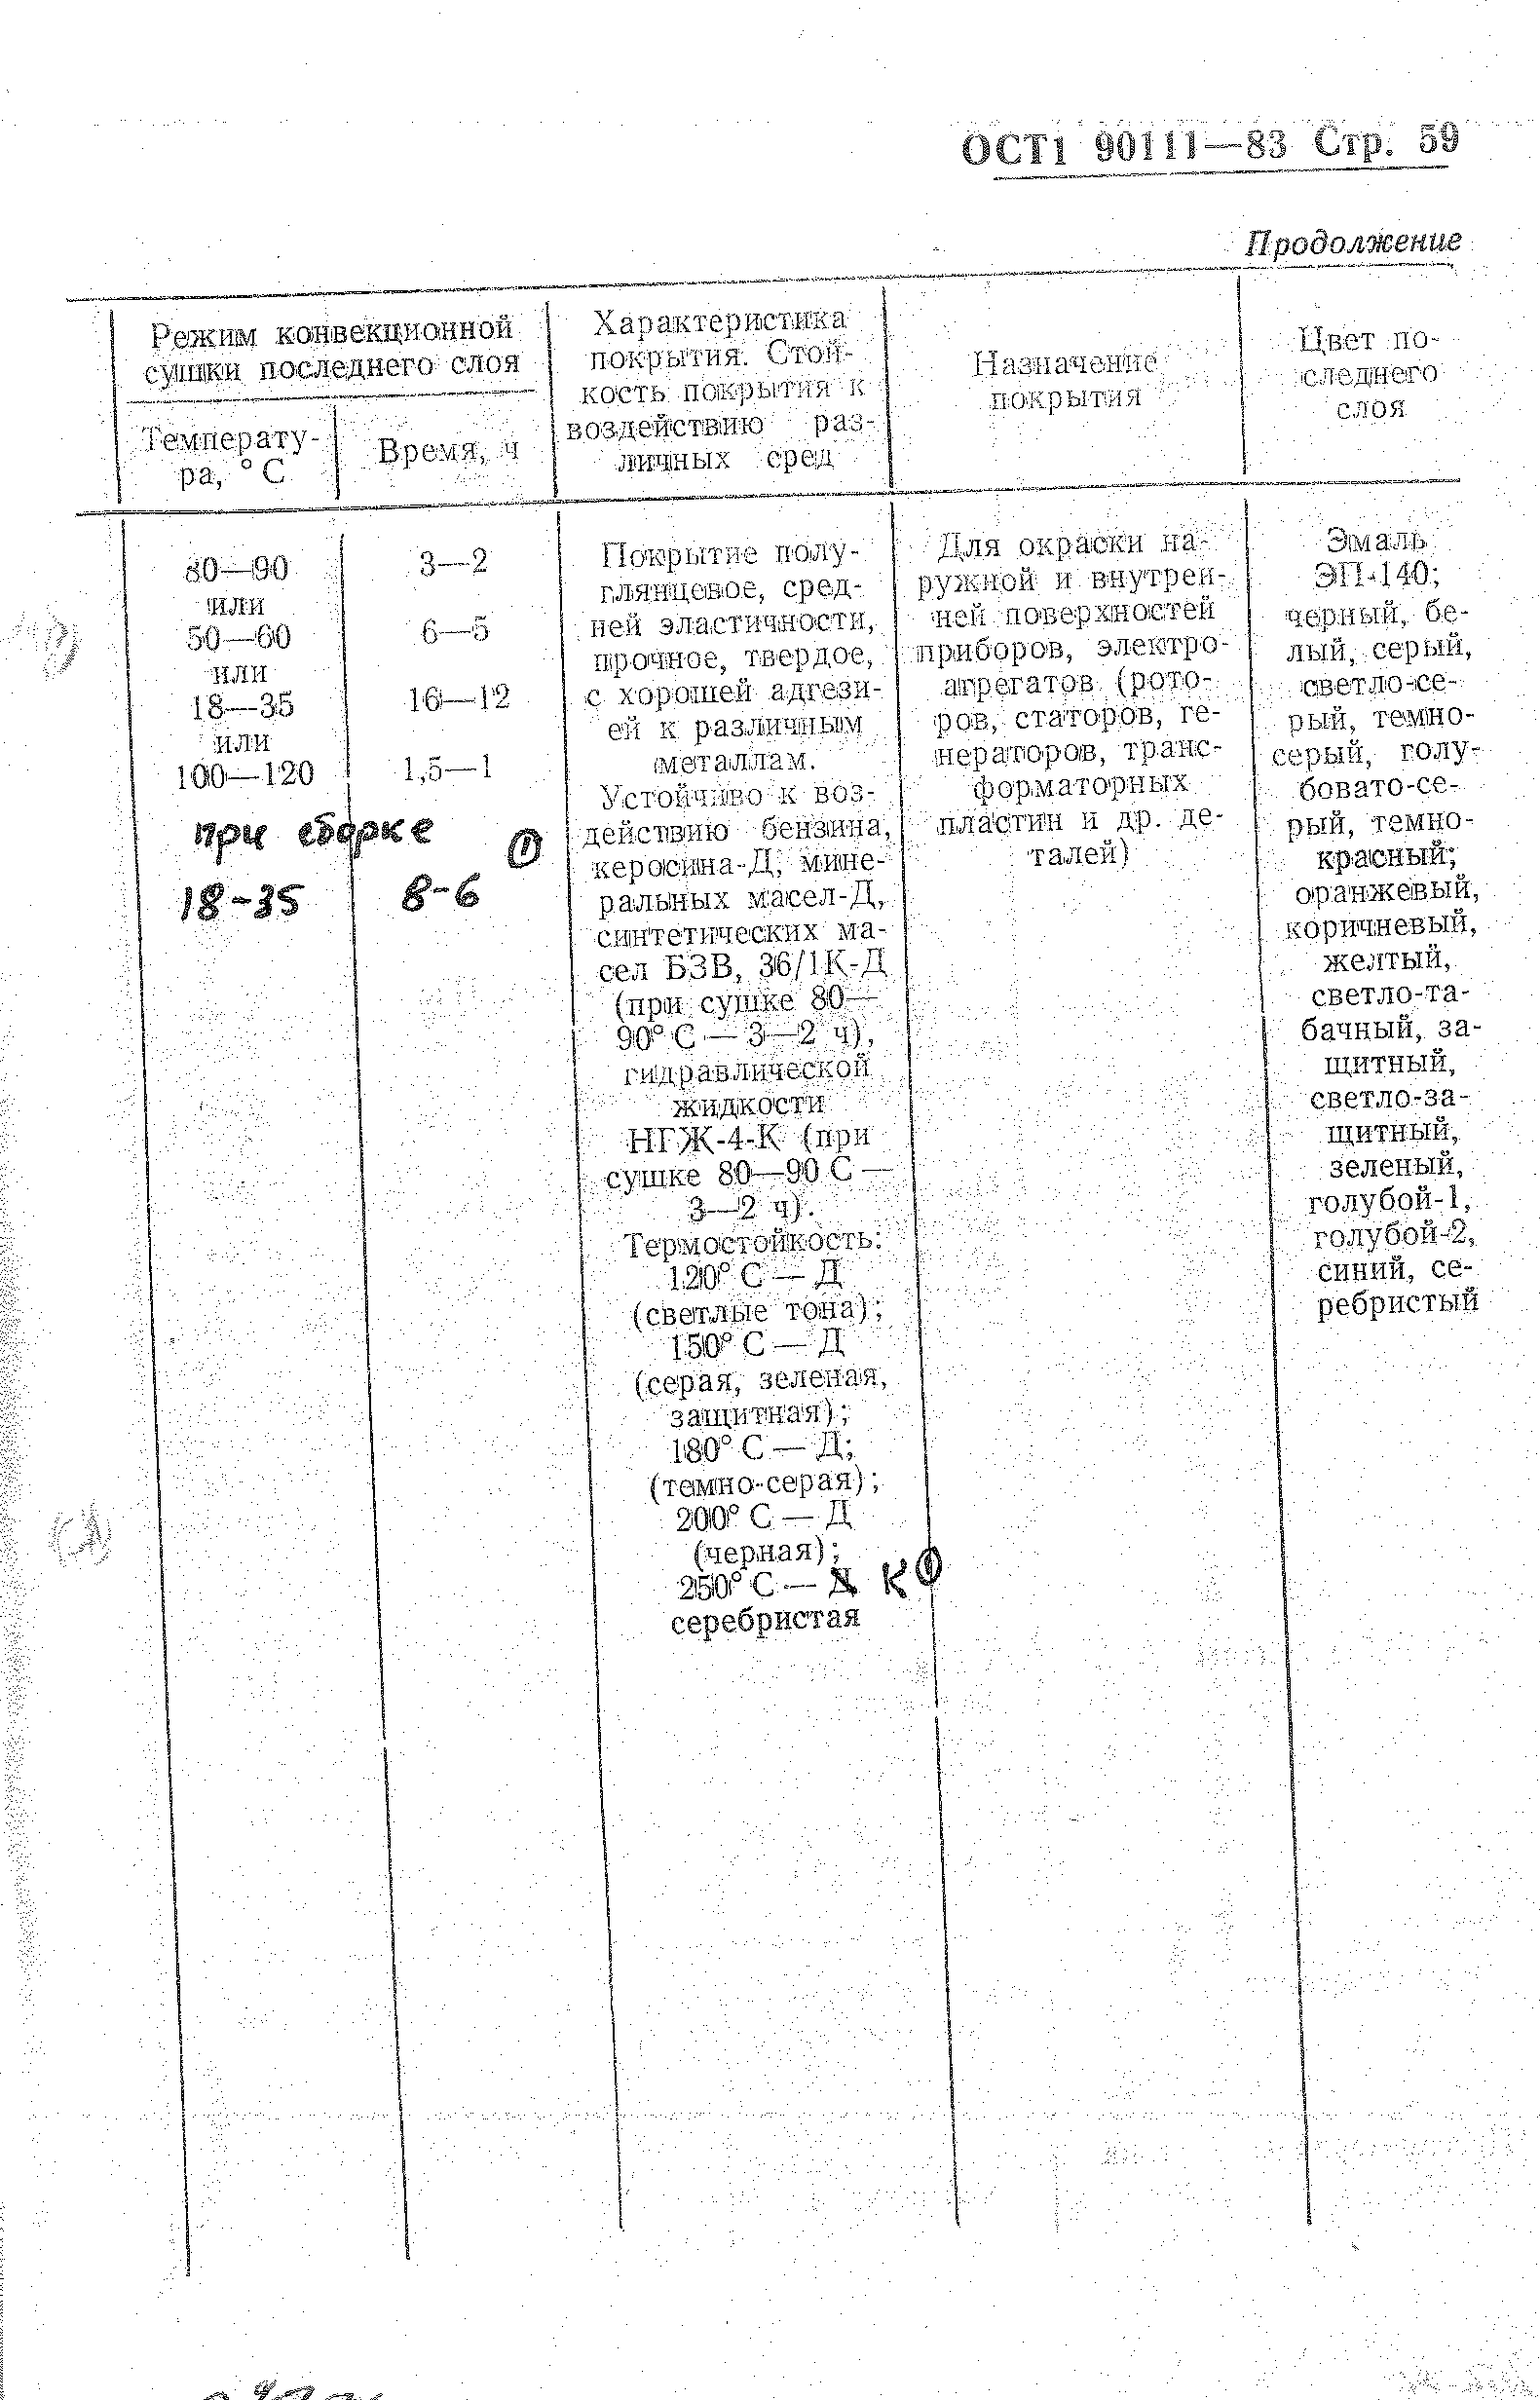 ОСТ1 90111—83 Стр. 59
Продолжение
Режим конвекционной
сушки последнего слоя
Температу-
ра, °С
Время, ч
Характеристика
покрытия. Стой-
кость покрытия к
воздействию раз-
личных сред
Назначение
покрытия
Цвет по-
следнего
слоя
80—90
или
50—60
или
18—35
или
100—120
при сборке
18-35
3—2
6—5
16—12
1,5—1
①
8-6
Покрытие полу-
глянцевое, сред-
ней эластичности,
прочное, твердое,
с хорошей адгези-
ей к различным
металлам.
Устойчиво к воз-
действию бензина,
керосина-Д, мине-
ральных масел-Д,
синтетических ма-
сел БЗВ, 36/1К-Д
(при сушке 80—
90° С — 3—2 ч),
гидравлической
жидкости
НГЖ-4-К (при
сушке 80—90 С —
3—2 ч).
Термостойкость:
120° С — Д
(светлые тона);
150° С — Д
(серая, зеленая,
защитная);
180° С — Д;
(темно-серая);
200° С — Д
(черная);
250° С — Д К ①
серебристая
Для окраски на-
ружной и внутрен-
ней поверхностей
приборов, электро-
агрегатов (рото-
ров, статоров, ге-
нераторов, транс-
форматорных
пластин и др. де-
талей)
Эмаль
ЭП-140;
черный, бе-
лый, серый,
светло-се-
рый, темно-
серый, голу-
бовато-се-
рый, темно-
красный;
оранжевый,
коричневый,
желтый,
светло-та-
бачный, за-
щитный,
светло-за-
щитный,
зеленый,
голубой-1,
голубой-2,
синий, се-
ребристый